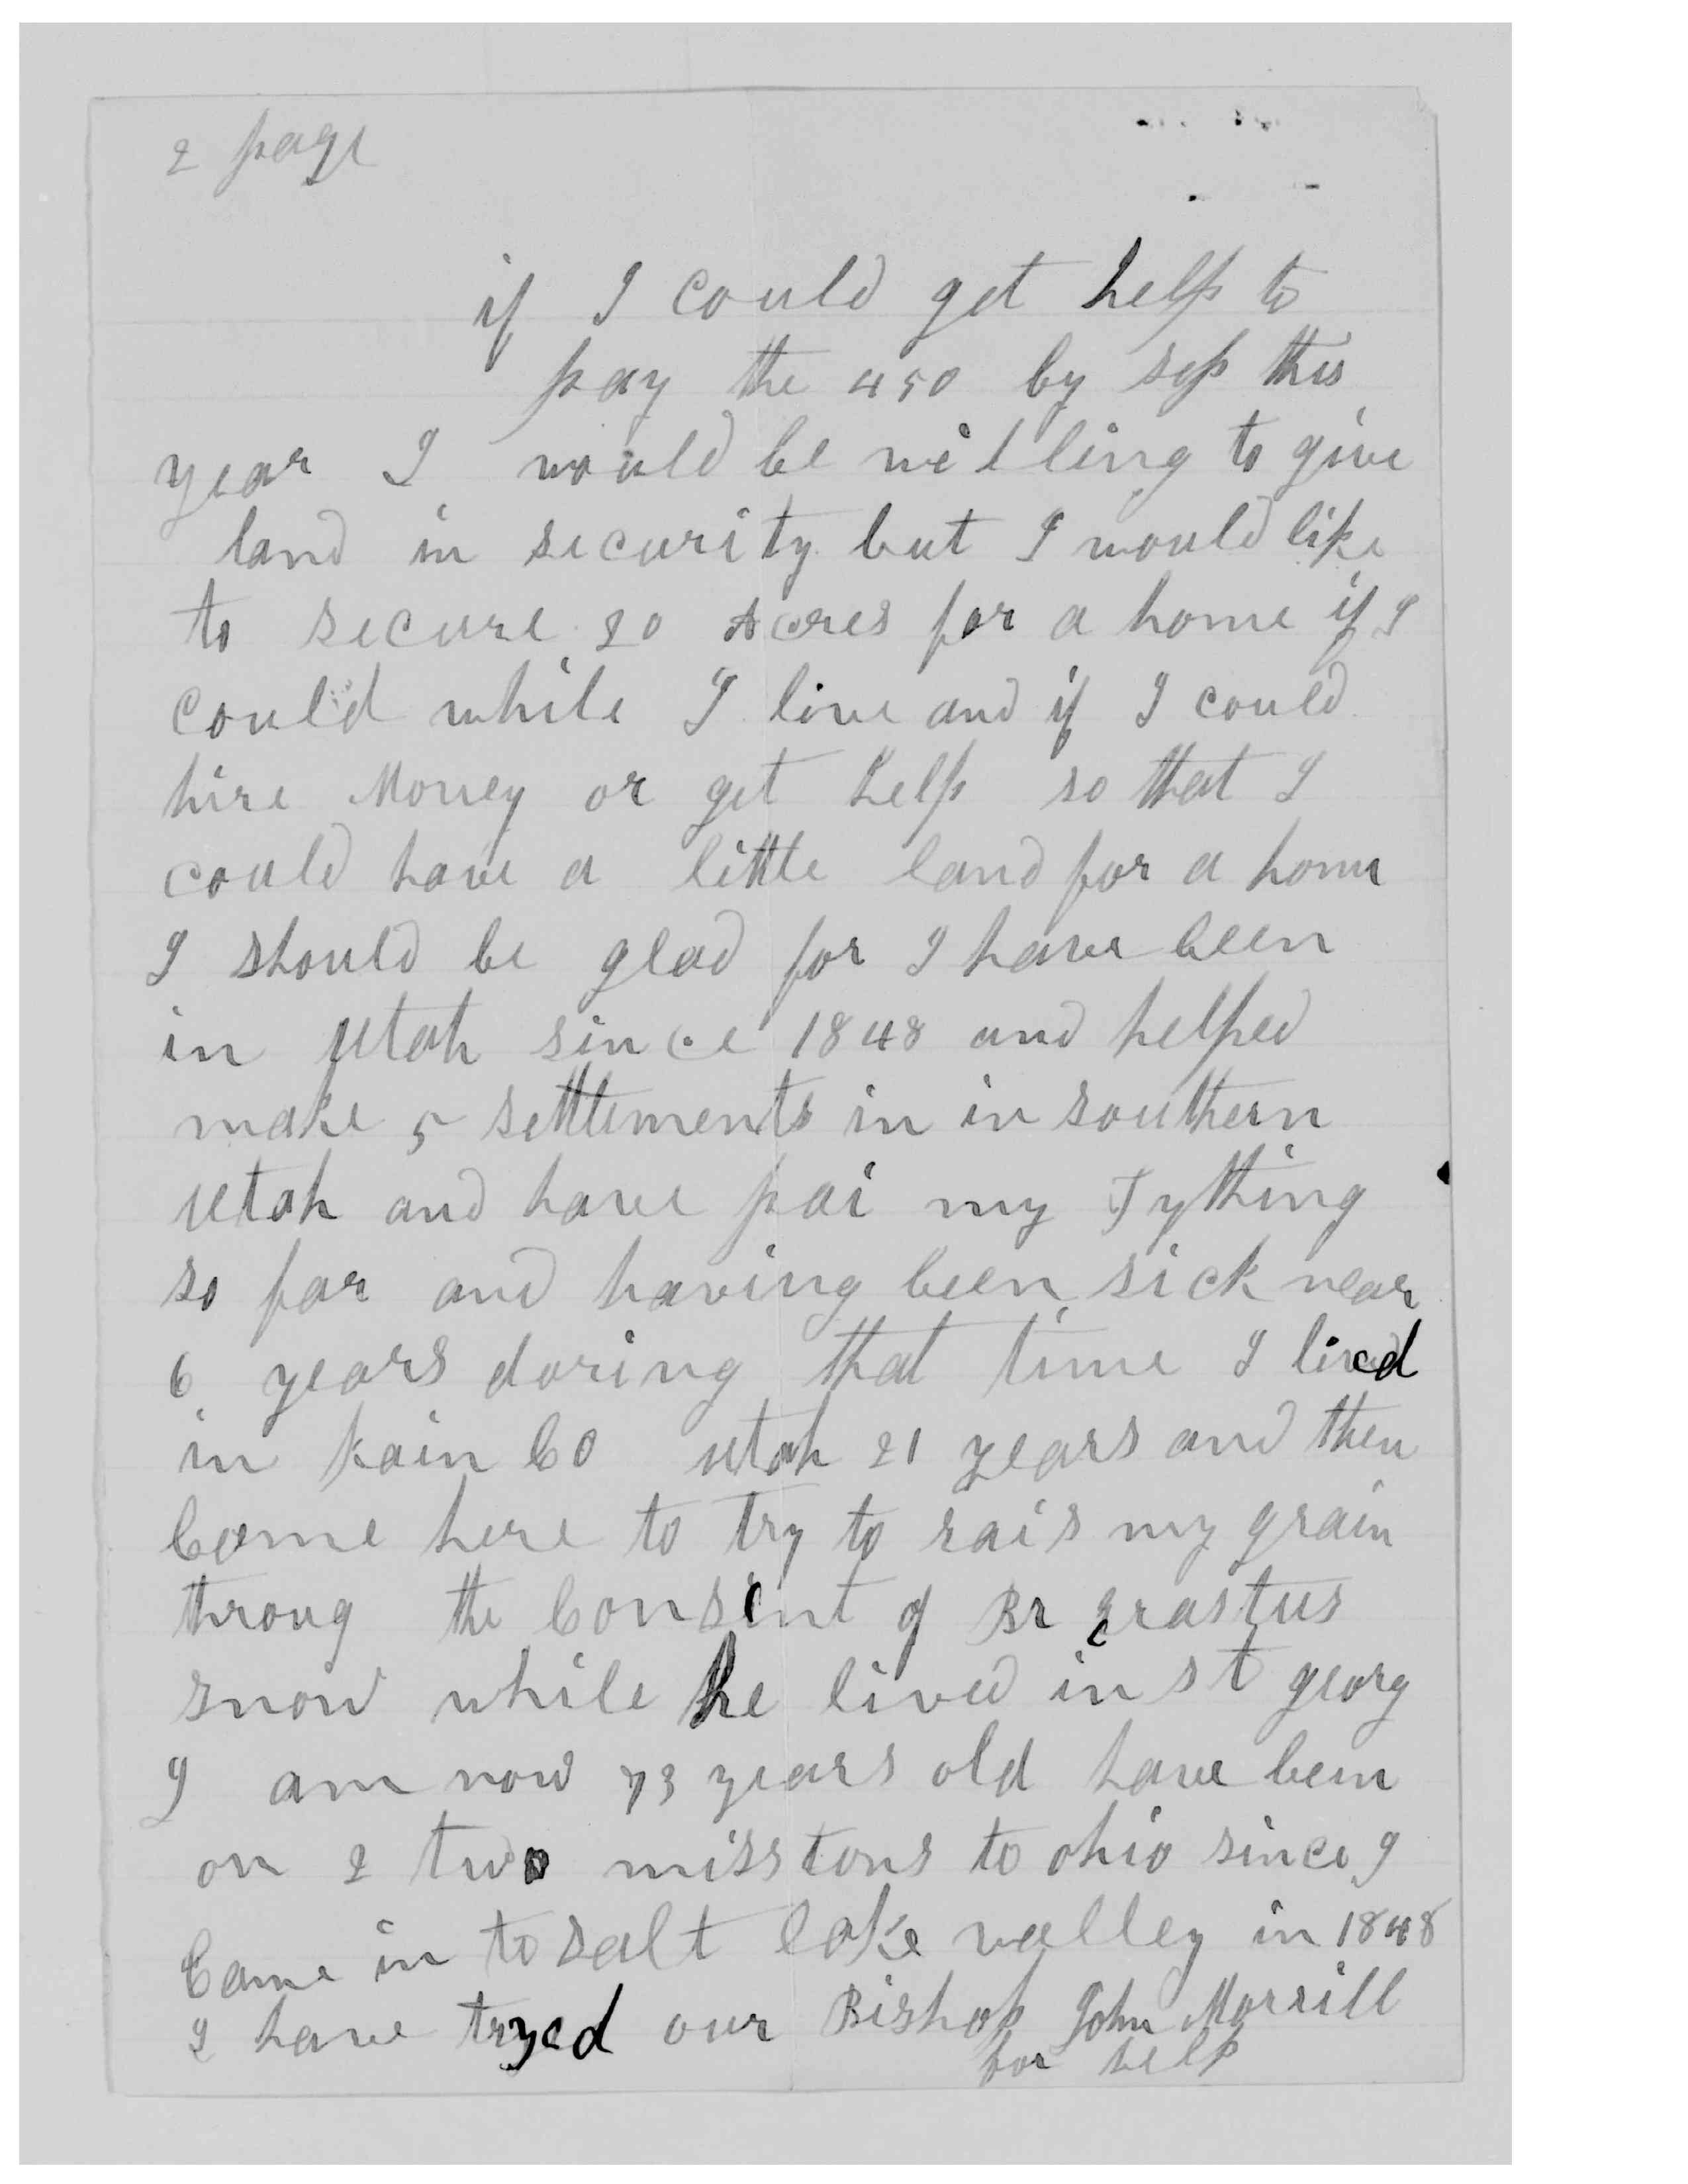 2 page
if I could get help to
pay the 450 by sep this
year I would be willing to give
land in security but I would like
to secure 20 Acres for a home if I
could while I live and if I could
hire Money or get help so that I
could have a little land for a home
I should be glad for I have been
in utah since 1848 and helped
make 5 settlements in in southern
utah and have pai my Tything
so far and having been sick near
6 years during that time I lived
in Kain Co utah 21 years and then
Come here to try to rais my grain
throug the Consent of Br Erastus
snow while he lived in st georg
I am now 73 years old have been
on 2 two misstons to ohio since I
Came in to salt lake valley in 1848
I have tryed our Bishop John Morrill
for help